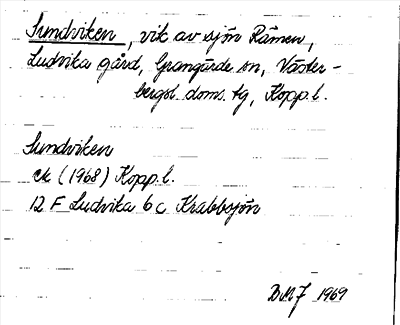 Sundviken, vik av sjön Råmen,
Ludvika gård, Grangärde sn, Väster-
bergsl. doms. tg, Kopp.l.
Sundviken
ek (1968) Kopp.l.
12 F Ludvika 6 c Krabbsjön
BMJ 1969